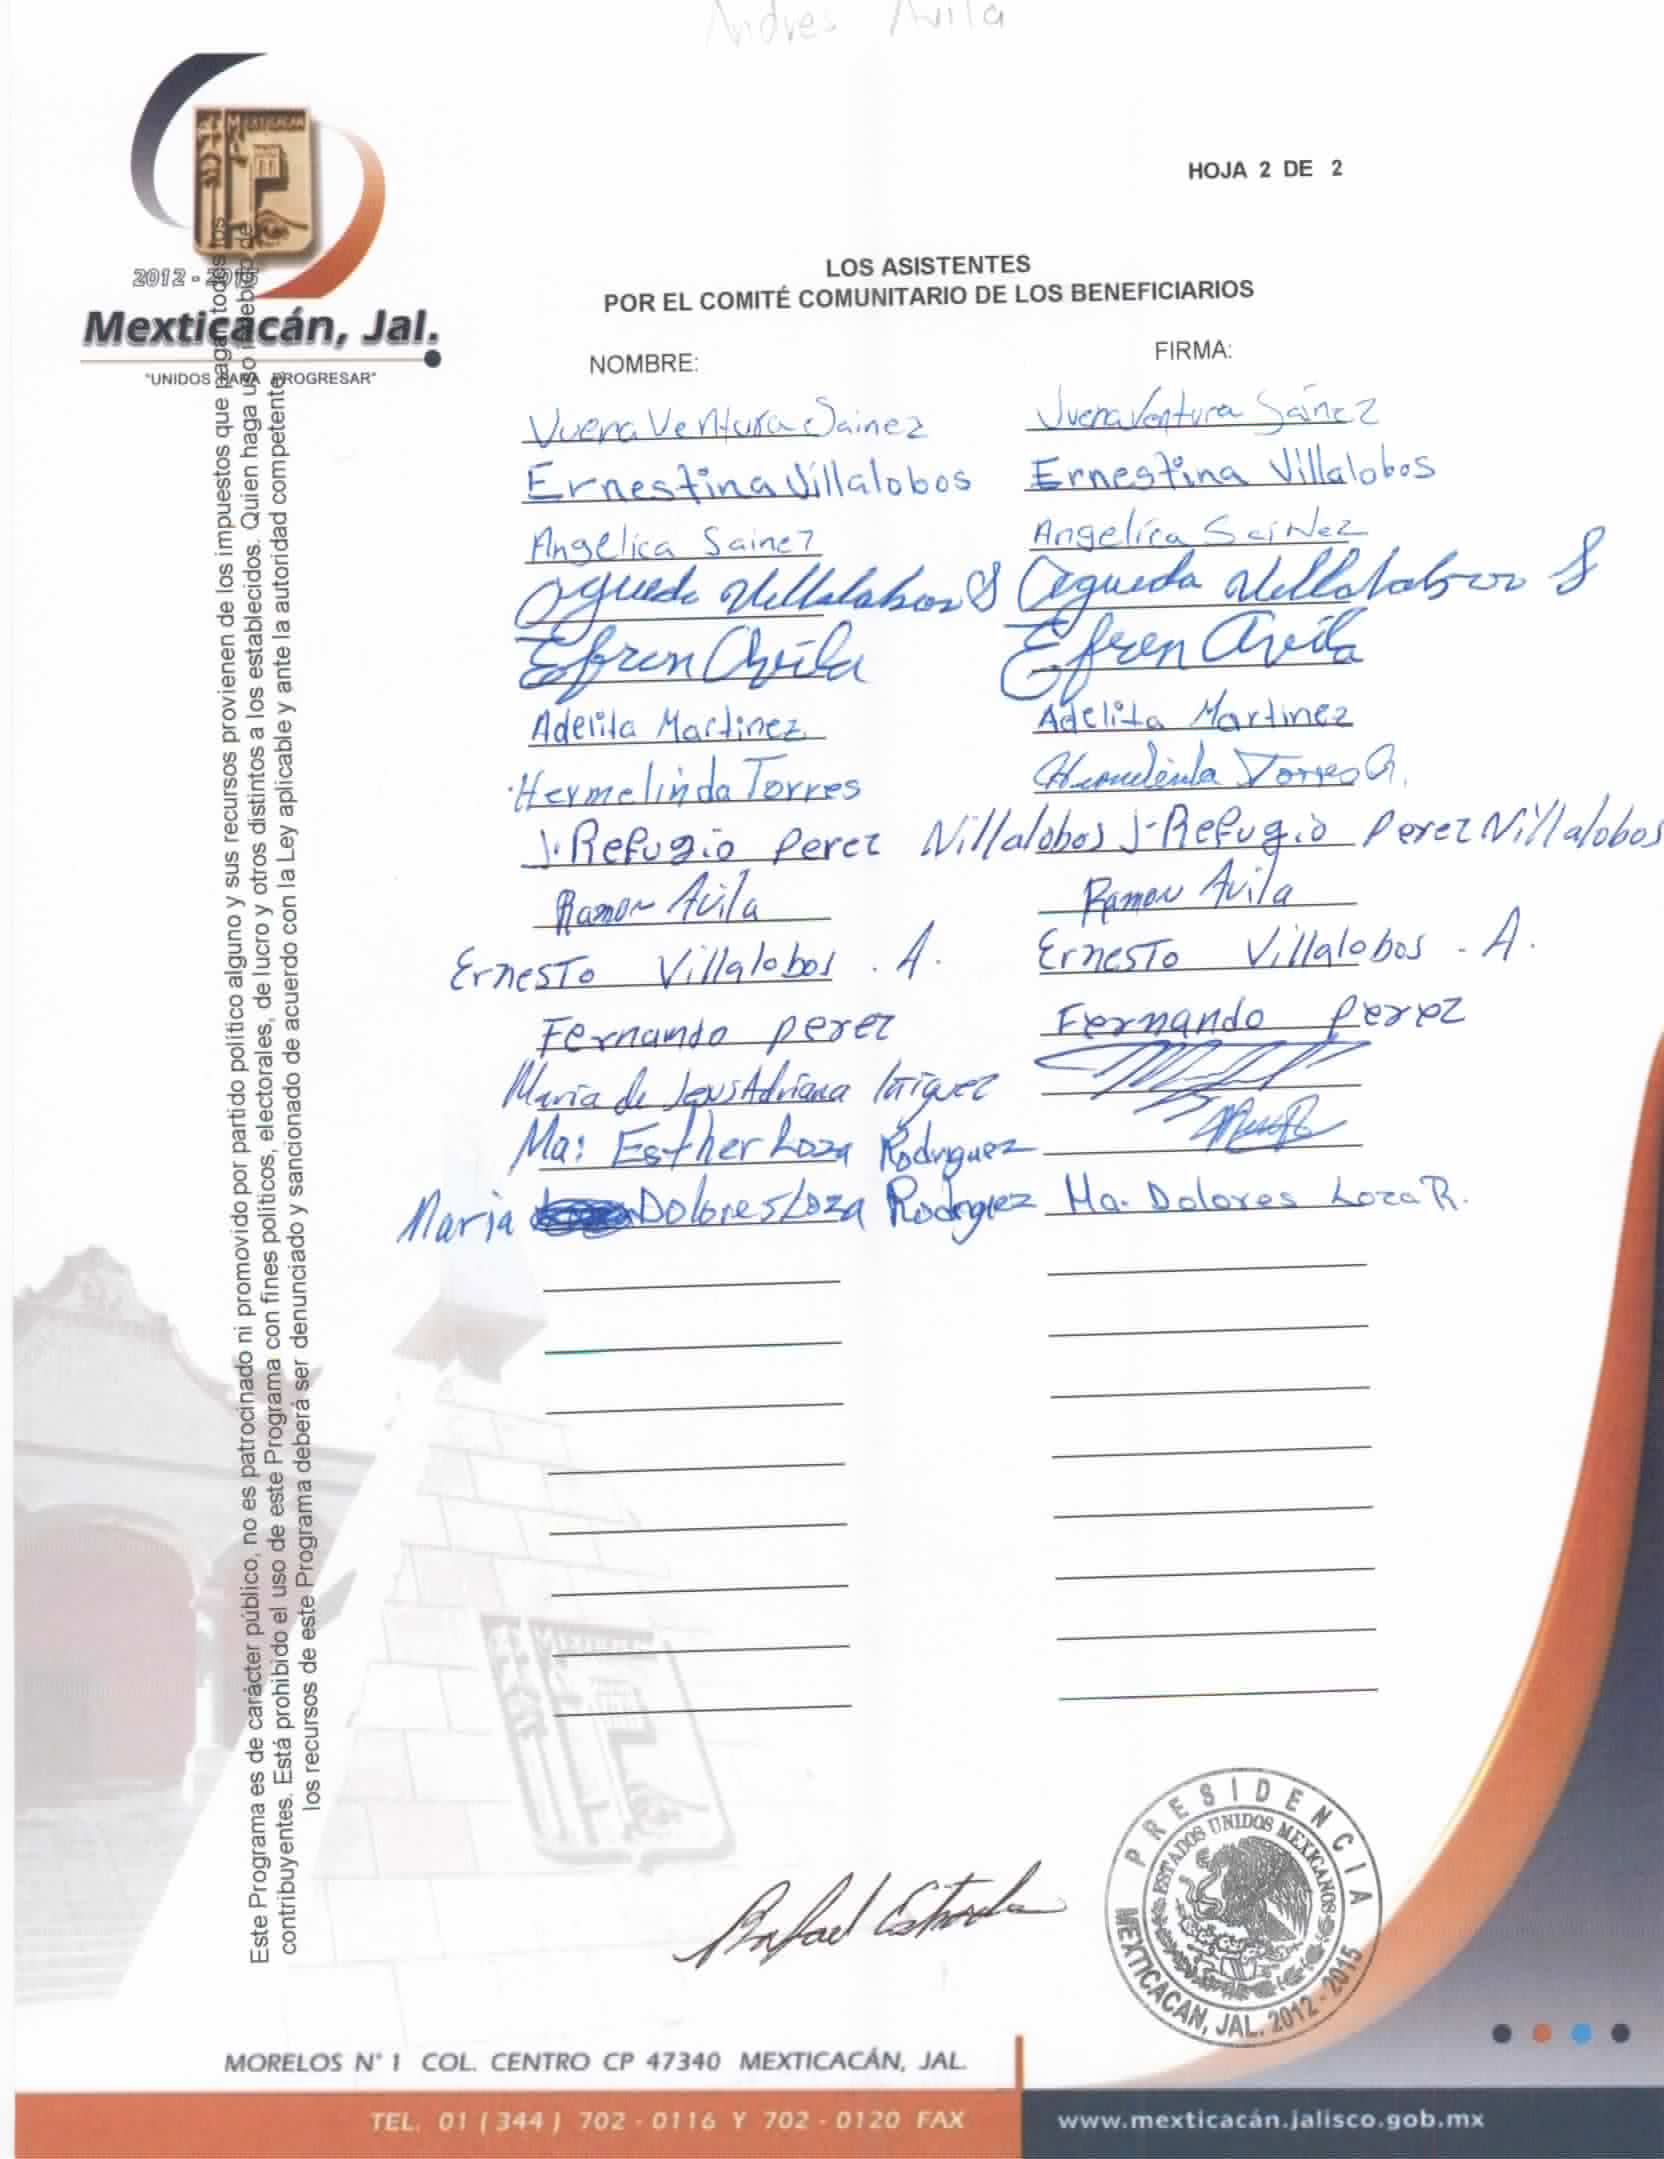 Andres Avila
MEXTICACAN
HOJA 2 DE 2
2012 - 2015
Mexticacán, Jal.
"UNIDOS PARA PROGRESAR"
LOS ASISTENTES
POR EL COMITÉ COMUNITARIO DE LOS BENEFICIARIOS
NOMBRE: FIRMA:
Vuena Ventura Sainez Vuena Ventura Sainez
Ernestina Villalobos Ernestina Villalobos
Angelica Sainez Angelica Sainez
Agueda Villalobos S Agueda Villalobos S
Efren Avila Efren Avila
Adelita Martinez Adelita Martinez
Hermelinda Torres Hermelinda Torres R.
J. Refugio Perez Villalobos J. Refugio Perez Villalobos
Ramon Avila Ramon Avila
Ernesto Villalobos . A. Ernesto Villalobos . A.
Fernando perez Fernando Perez
Maria de Jesus Adriana Iñiguez
Ma: Esther Loza Rodriguez
Maria Dolores Loza Rodrgiez Ma. Dolores Loza R.
Este Programa es de carácter público, no es patrocinado ni promovido por partido político alguno y sus recursos provienen de los impuestos que pagan todos los
contribuyentes. Está prohibido el uso de este Programa con fines políticos, electorales, de lucro y otros distintos a los establecidos. Quien haga uso indebido de
los recursos de este Programa deberá ser denunciado y sancionado de acuerdo con la Ley aplicable y ante la autoridad competente.
Rafael Estrada
PRESIDENCIA
ESTADOS UNIDOS MEXICANOS
MEXTICACAN, JAL. 2012 - 2015
MORELOS N° 1 COL. CENTRO CP 47340 MEXTICACÁN, JAL.
TEL. 01 ( 344 ) 702 - 0116 Y 702 - 0120 FAX www.mexticacán.jalisco.gob.mx